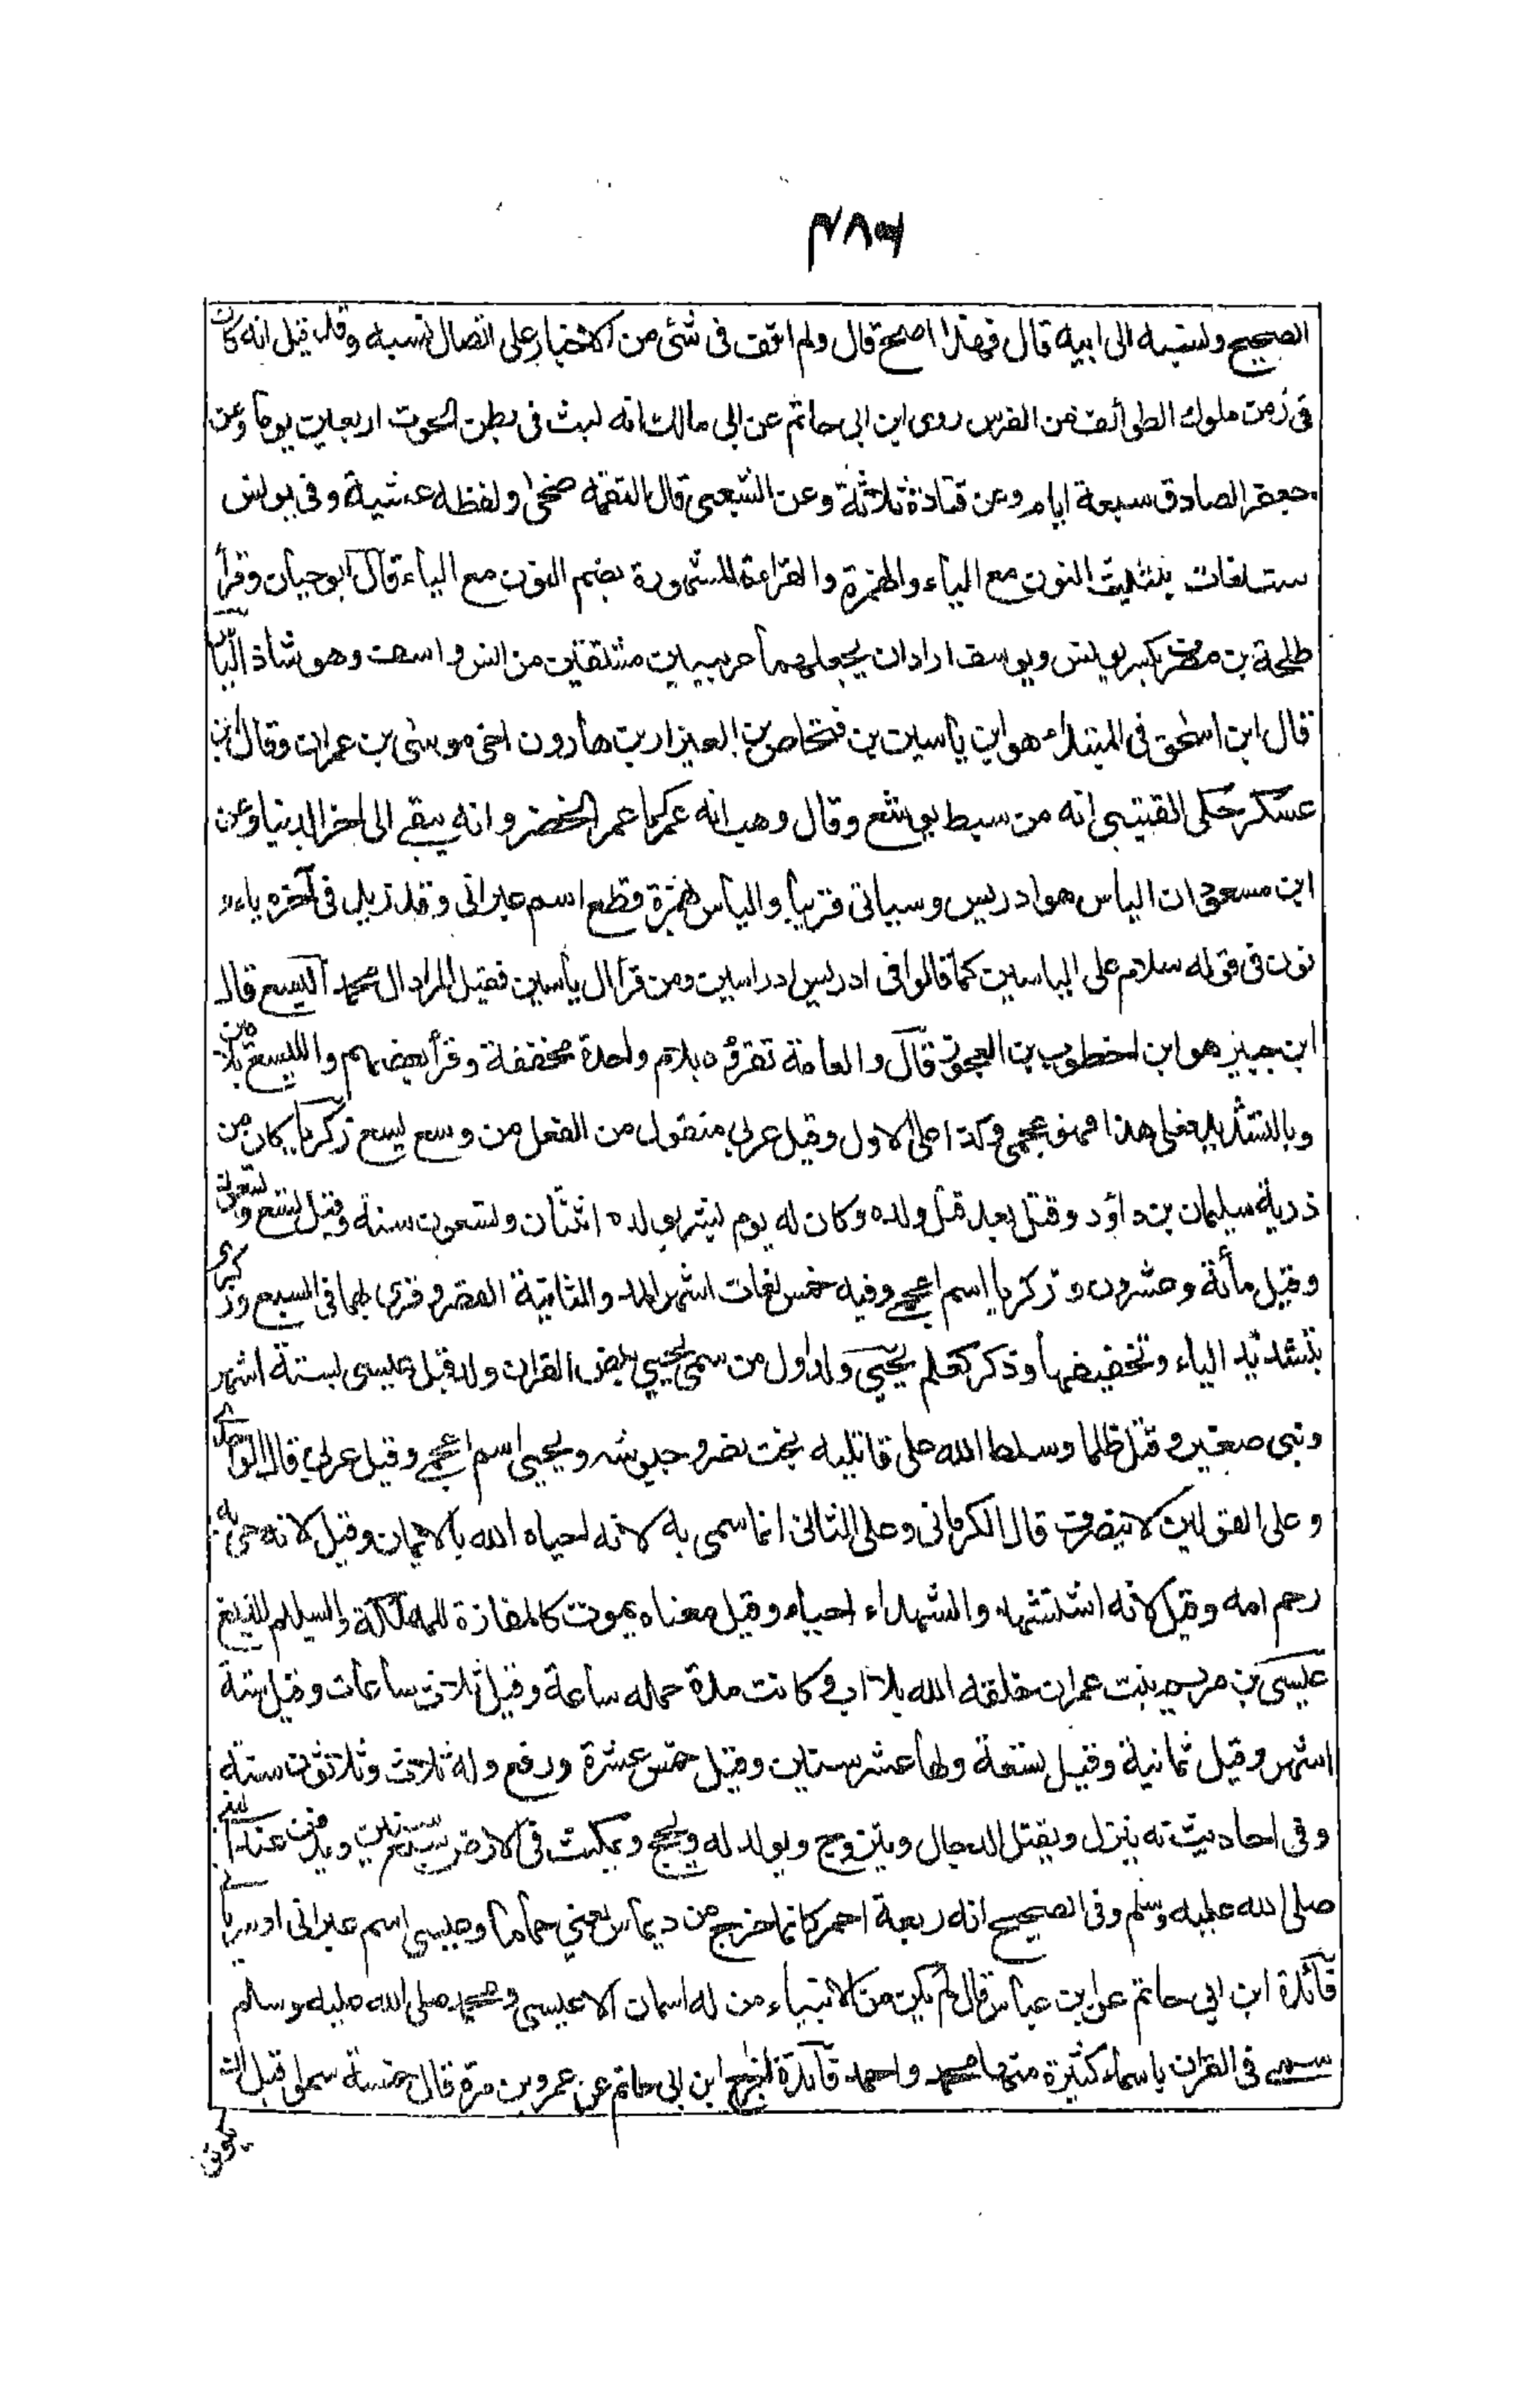 الصحيح ونسبه الى ابيه قال فهذا اصح قال ولم اقف فى شئ من الاخبار على اتصال نسبه وقد قيل انه كان
فى زمن ملوك الطوائف من الفرس روى ابن ابى حاتم عن ابى مالك انه لبث فى بطن الحوت اربعين يوما وعن
جعفر الصادق سبعة ايام وعن قتادة ثلاثة وعن الشعبى قال التقمه ضحى ولفظه عشية وفى يونس
ست لغات بتثليث النون مع الياء والهمزة والقراءة المشهورة بضم النون مع الياء قال ابو حيان وقرأ
طلحة بن مصرف بكسر يونس ويوسف اراد ان يجعلهما عربيين مشتقين من انس واسف وهو شاذ الياس
قال ابن اسحق فى المبتدأ هو ابن ياسين بن فنحاص بن العيزار بن هارون اخى موسى بن عمران وقال ابن
عسكر حكى القتيبى انه من سبط يوشع وقال وهب انه عمر كما عمر الخضر وانه يبقى الى اخر الدنيا وعن
ابن مسعود ان الياس هو ادريس وسياتى قريبا والياس همزة قطع اسم عبرانى وقد زيد فى آخره ياء و
نون فى قوله سلام على الياسين كما قالوا فى ادريس ادراسين ومن قرأ ال ياسين فقيل المراد ال محمد اليسع قال
ابن جبير هو ابن اخطوب بن العجوز قال والعامة تقرؤه بلام واحدة مخففة وقرأ بعضهم والليسع بلامين
وبالتشديد فعلى هذا هو عجمى وكذا على الاول وقيل عربى منقول من الفعل من وسع يسع زكريا كان من
ذرية سليمان بن داؤد وقتل بعد قتل ولده وكان له يوم بشر بولده اثنتان وتسعون سنة وقيل تسع وتسعون
وقيل مأئة وعشرون و زكريا اسم اعجمى وفيه خمس لغات اشهرها المد والثانية القصر وقرى بهما فى السبع وزكرى
بتشديد الياء وتخفيفها وذكر كعلم يحيى ولده اول من سمى يحيى بنص القران ولد قبل عيسى بستة اشهر
ونبى صغيرا وقتل ظلما وسلط الله على قاتليه بخت نصر وجيوشه ويحيى اسم اعجمى وقيل عربى قال الواحدى
وعلى القولين لا ينصرف قال الكرمانى وعلى الثانى انما سمى به لانه احياه الله بالايمان وقيل لانه حى به
رحم امه وقيل لانه استشهد والشهداء احياء وقيل معناه يموت كالمفازة للمهلكة والسليم للديغ
عيسى بن مريم بنت عمران خلقه الله بلا اب وكانت مدة حمله ساعة وقيل ثلاث ساعات وقيل ستة
اشهر وقيل ثمانية وقيل تسعة ولها عشر سنين وقيل خمس عشرة ورفع وله ثلاث وثلاثون سنة
وفى احاديث انه ينزل ويقتل الدجال ويتزوج ويولد له ويحج ويمكث فى الارض سبع سنين ويدفن عند النبى
صلى الله عليه وسلم وفى الصحيح انه ربعة احمر كانما خرج من ديماس يعنى حماما وعيسى اسم عبرانى او سريانى
فائدة ابن ابى حاتم عن ابن عباس قال لم يكن من الانبياء من له اسمان الا عيسى ومحمد صلى الله عليه وسلم
سمى فى القران باسماء كثيرة منها محمد واحمد فائدة اخرج ابن ابى حاتم عن عمرو بن مرة قال خمسة سموا قبل ان
يكونوا